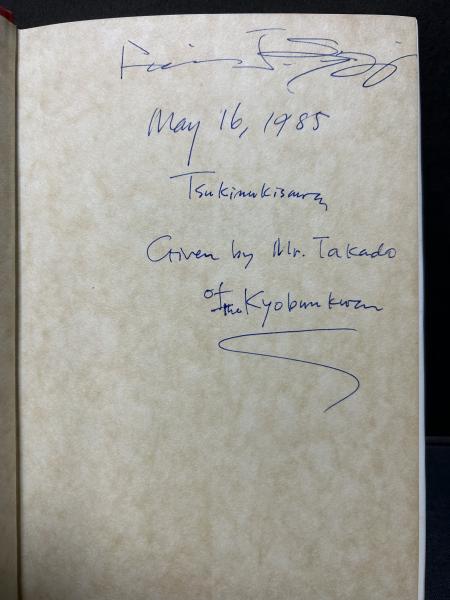 May 16, 1985
Tsukinukisawa
Given by Mr. Takado
of the Kyobunkwan